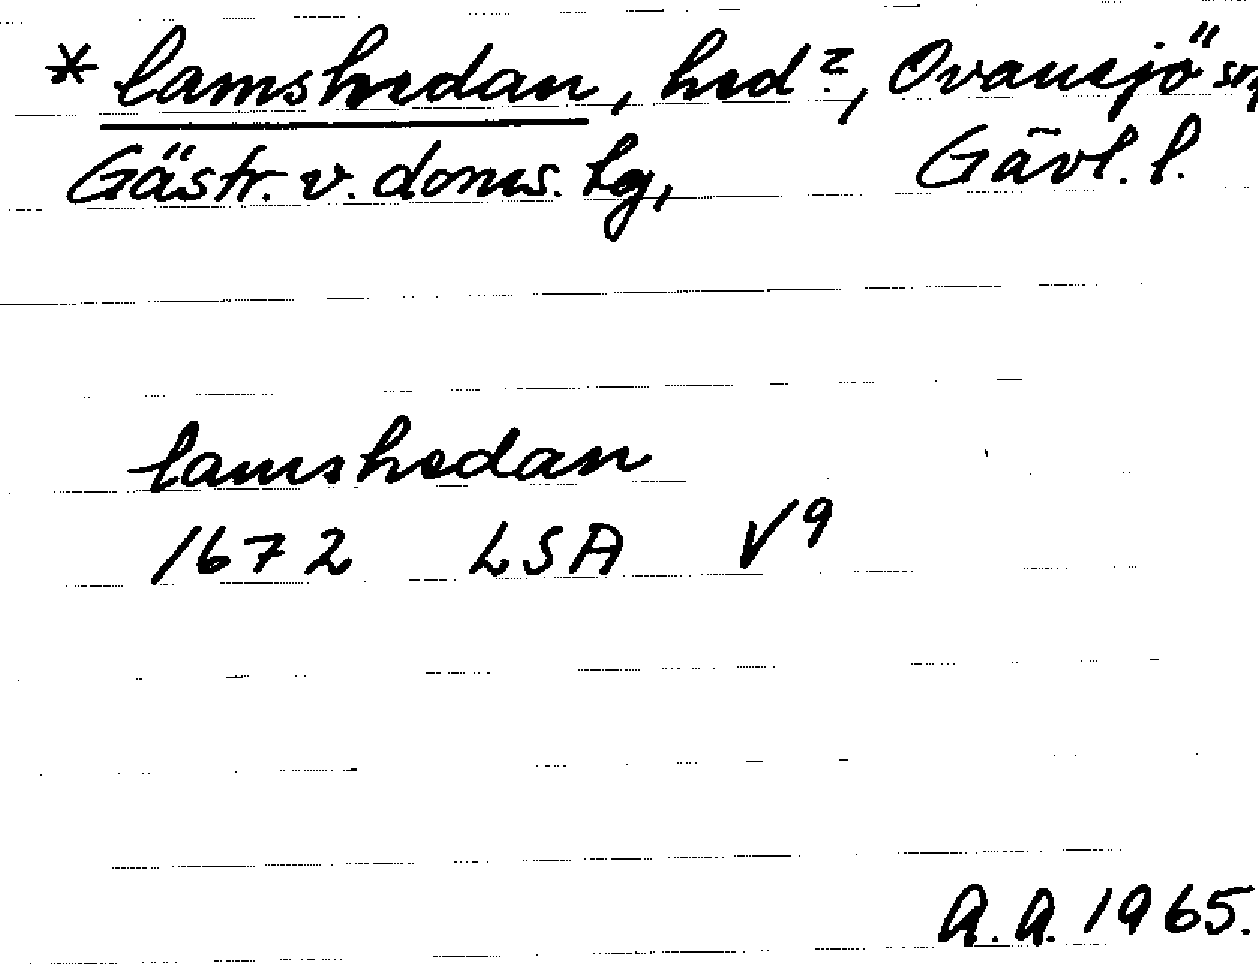 * lamshedan, hed?, Ovansjö sn,
Gästr. v. doms. lg, Gävl. l.
lamshedan
1672 LSA V9
A.A. 1965.